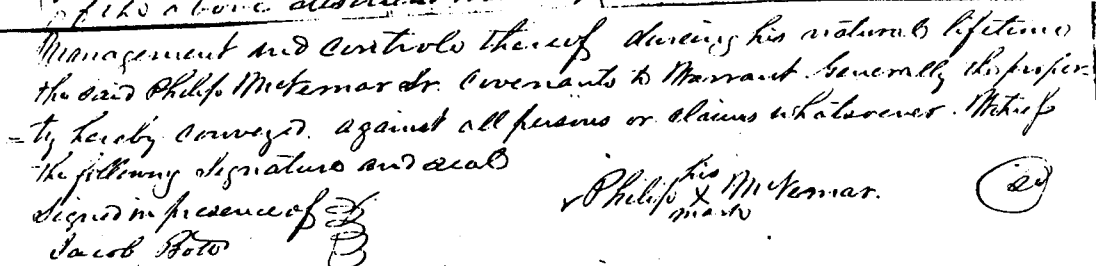 of the above
Management and controle thereof during his natural lifetime
the said Philip McNemar Sr. Covenants to Warrant Generally the proper=
=ty hereby conveyed. against all persons or claims whatsoever. Witness
the following signature and seal
Signed in presence of
Philip his X mark McNemar.
Jacob